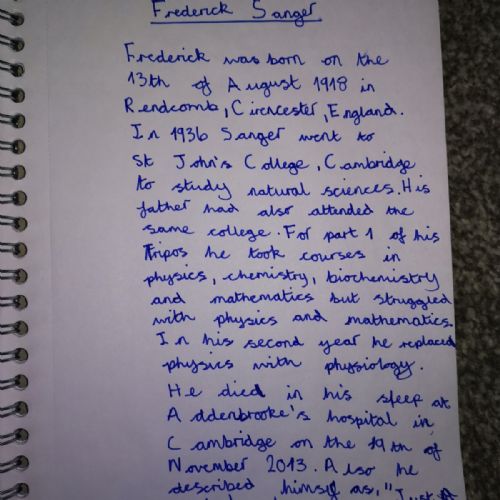 Frederick Sanger
Frederick was born on the
13th of August 1918 in
Rendcomb, Cirencester, England.
In 1936 Sanger went to
St John's College, Cambridge
to study natural sciences. His
father had also attended the
same college. For part 1 of his
Tripos he took courses in
physics, chemistry, biochemistry
and mathematics but struggled
with physics and mathematics.
In his second year he replaced
physics with physiology.
He died in his sleep at
Addenbrooke's hospital in
Cambridge on the 19th of
November 2013. Also he
described himself as, "Just A